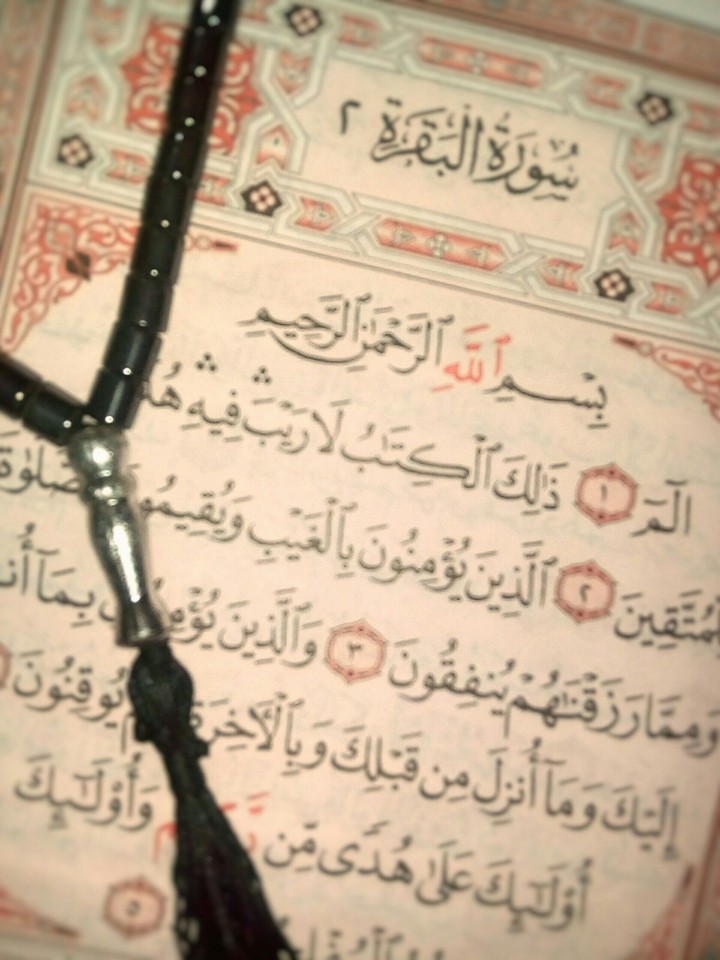 سُورَةُ الْبَقَرَةِ ٢
بِسْمِ ٱللَّهِ ٱلرَّحْمَٰنِ ٱلرَّحِيمِ
الٓمٓ ١ ذَٰلِكَ ٱلْكِتَٰبُ لَا رَيْبَ ۛ فِيهِ ۛ
ٱلَّذِينَ يُؤْمِنُونَ بِٱلْغَيْبِ وَيُقِيمُو ٢
وَمِمَّا رَزَقْنَٰهُمْ يُنفِقُونَ ٣ وَٱلَّذِينَ بِمَآ
إِلَيْكَ وَمَآ أُنزِلَ مِن قَبْلِكَ وَبِٱلْءَاخِرَةِ يُوقِنُونَ
أُو۟لَٰٓئِكَ عَلَىٰ هُدًى مِّن وَأُو۟لَٰٓئِكَ
٥